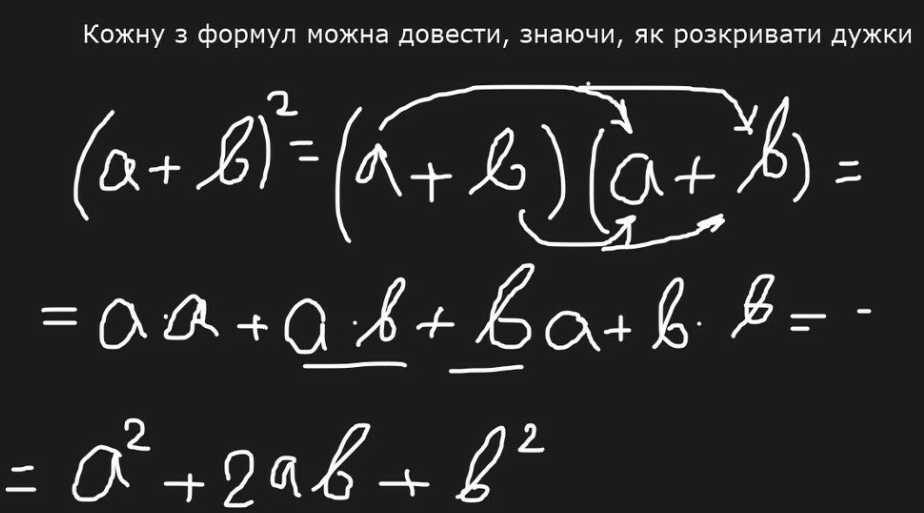 Кожну з формул можна довести, знаючи, як розкривати дужки
(a + b)² = (a + b)(a + b) =
= a·a + a·b + ba + b·b = -
= a² + 2ab + b²